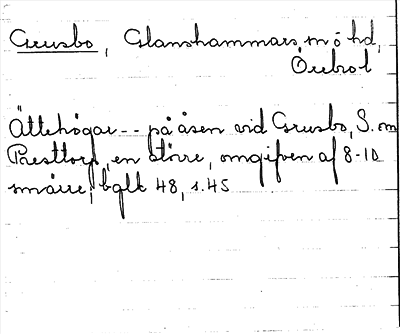 Grusbo, Glanshammars sn o hd,
Örebro l
Ättehögar -- på åsen vid Grusbo, S. om
Presttorp, en större, omgifven af 8-10
smärre, bglt 48, s. 45